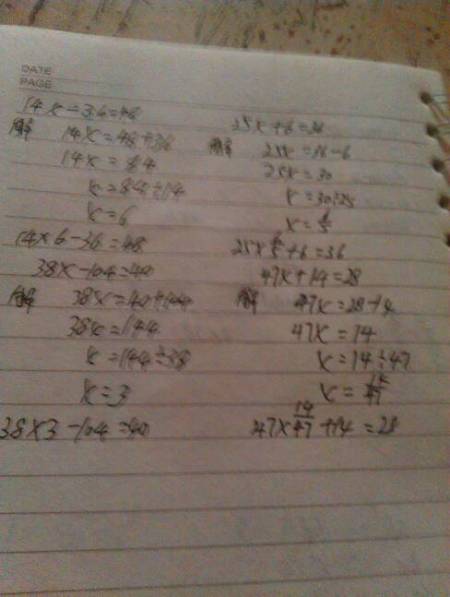 DATE
PAGE
14x-36=48
解 14x=48+36
14x=84
x=84÷14
x=6
14×6-36=48
38x-104=40
解 38x=40+104
38x=144
x=144÷38
x=3
38×3-104=40
25x+6=36
解 25x=36-6
25x=30
x=30÷25
25×6/5+6=36
47x+14=28
解 47x=28-14
47x=14
x=14÷47
x=14/47
47×14/47+14=28